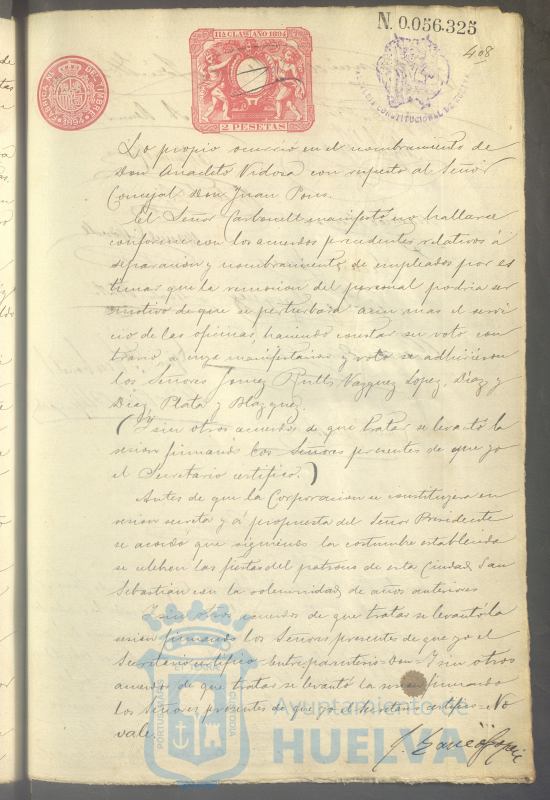 N. 0.056.325
408
11ª CLASE AÑO 1894
FABRICA NL. DEL TIMBRE
1894
2 PESETAS
CONSTITUCIONAL DE HUELVA
Lo propio ocurrió en el nombramiento de
Don Anacleto Vidosa con respecto al Señor
Concejal Don Juan Pons.
El Señor Carbonell manifestó no hallarse
conforme con los acuerdos precedentes relativos á
separacion y nombramiento de empleados por es
timar que la remocion del personal podria ser
motivo de que se perturbara aun mas el servi
cio de las oficinas, haciendo constar su voto con
trario, a cuya manifestacion y voto se adhirieron
los Señores Gomez Rull, Vazquez Lopez, Diaz y
Diaz, Plata y Blazquez.
(Y sin otros acuerdos de que tratar se levantó la
sesion firmando los Señores presentes de que yo
el Secretario certifico.)
Antes de que la Corporacion se constituyera en
sesion secreta y á propuesta del Señor Presidente
se acordó que siguiendo la costumbre establecida
se celebren las fiestas del patrono de esta Ciudad San
Sebastian con la solemnidad de años anteriores
Y sin otros acuerdos de que tratar se levantó la
sesion firmando los Señores presentes de que yo el
Secretario certifico. Entre parentesis Y sin otros
acuerdos de que tratar se levantó la sesion firmando
los Señores presentes de que yo el Secretario certifico No
vale.
PORTUS MARIS
ET TERRE
CUSTODIA
Ayuntamiento de
HUELVA